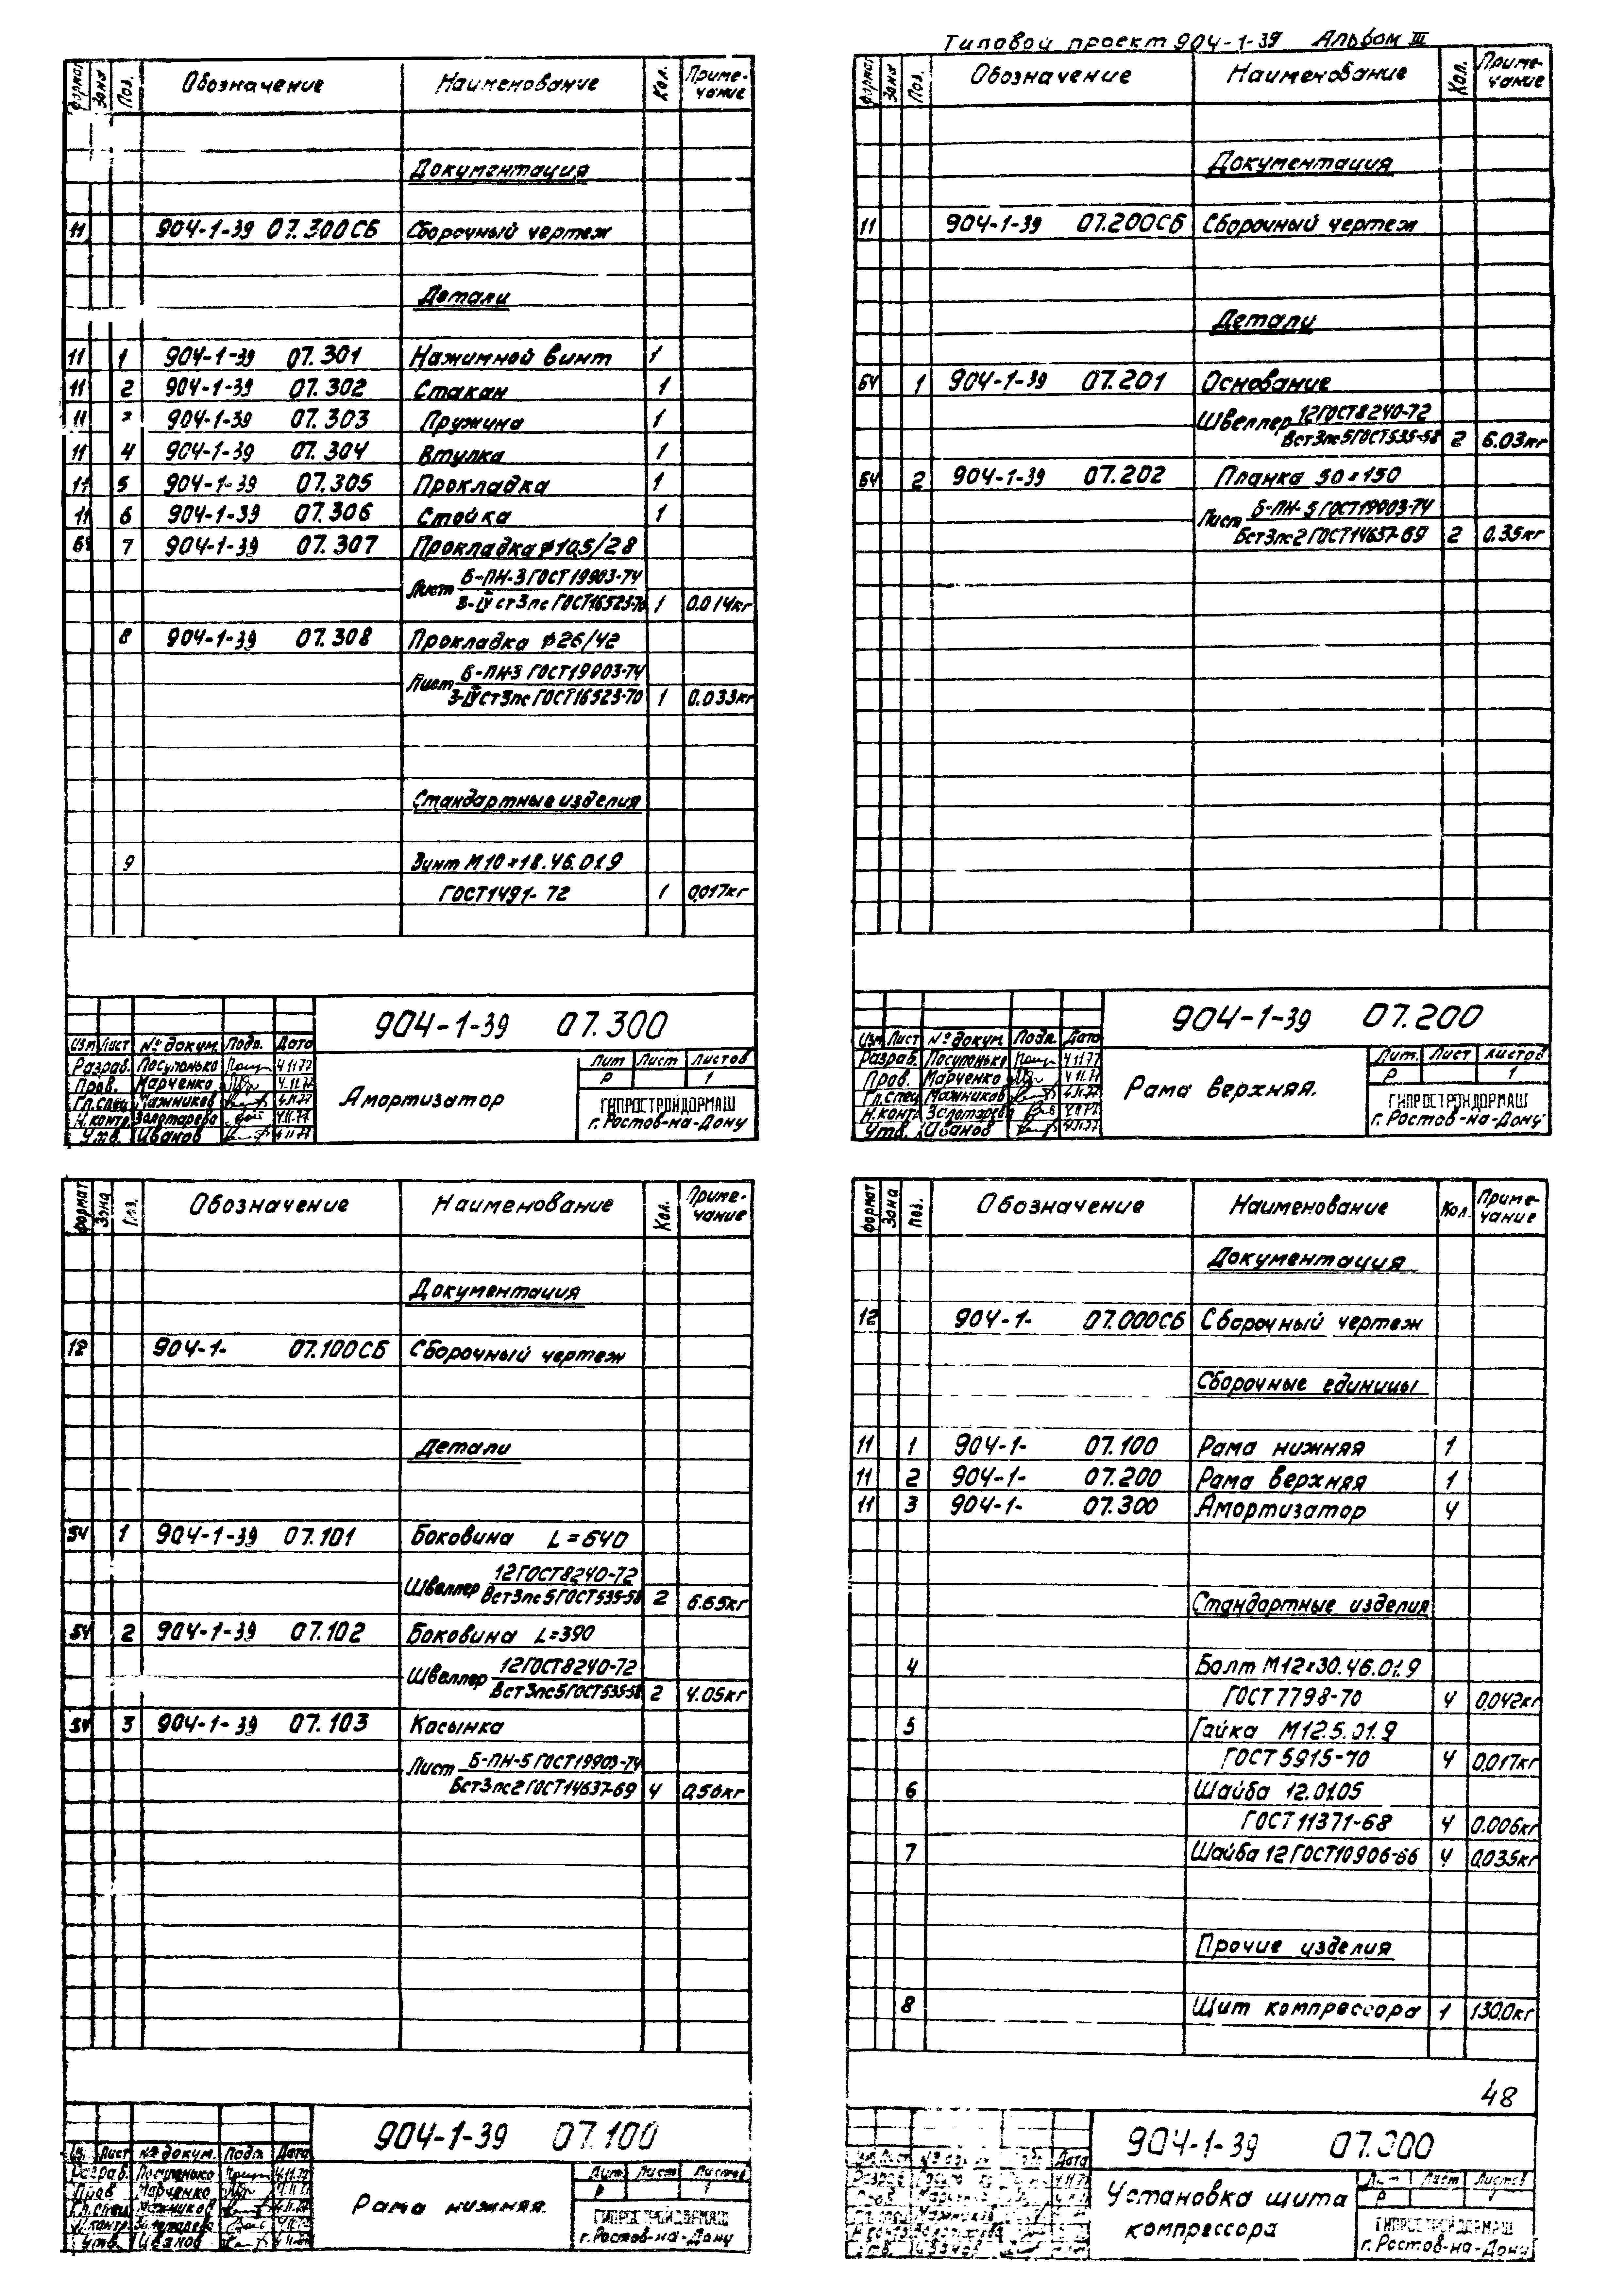 Типовой проект 904-1-39 Альбом III
Формат Зона Поз. Обозначение Наименование Кол. Приме-чание
Документация
11 904-1-39 07.300СБ Сборочный чертеж
Детали
11 1 904-1-39 07.301 Нажимной винт 1
11 2 904-1-39 07.302 Стакан 1
11 904-1-39 07.303 Пружина 1
11 4 904-1-39 07.304 Втулка 1
11 5 904-1-39 07.305 Прокладка 1
11 6 904-1-39 07.306 Стойка 1
БЧ 7 904-1-39 07.307 Прокладка ф10,5/28
Лист Б-ПН-3 ГОСТ 19903-74
3-IV ст3пс ГОСТ16523-70 1 0.014кг
8 904-1-39 07.308 Прокладка ф26/42
Лист Б-ПН-3 ГОСТ19903-74
3-IV ст3пс ГОСТ16523-70 1 0.033кг
Стандартные изделия
9 Винт М10×18.46.019
ГОСТ1491-72 1 0,017кг
904-1-39 07.300
Изм Лист № докум. Подп. Дата
Разраб. Посупонько 4.11.77
Пров. Марченко 4.11.77
Гл.спец Мажников 4.11.77
Н.контр. Золотарева 4.11.77
Утв. Иванов 4.11.77
Амортизатор
Лит Лист Листов
Р 1
ГИПРОСТРОЙДОРМАШ
г. Ростов-на-Дону
Формат Зона Поз. Обозначение Наименование Кол. Приме-чание
Документация
11 904-1-39 07.200СБ Сборочный чертеж
Детали
БЧ 1 904-1-39 07.201 Основание
Швеллер 12ГОСТ8240-72
Вст3пс5ГОСТ535-58 2 6.03кг
БЧ 2 904-1-39 07.202 Планка 50×150
Лист Б-ПН-5 ГОСТ19903-74
Вст3пс2 ГОСТ14637-69 2 0.35кг
904-1-39 07.200
Изм Лист № докум. Подп. Дата
Разраб. Посупонько 4.11.77
Пров. Марченко 4.11.77
Гл.спец Мажников 4.11.77
Н.контр Золотарева 4.11.77
Утв. Иванов 4.11.77
Рама верхняя.
Лит. Лист Листов
Р 1
ГИПРОСТРОЙДОРМАШ
г. Ростов-на-Дону
Формат Зона Поз. Обозначение Наименование Кол. Приме-чание
Документация
12 904-1- 07.100СБ Сборочный чертеж
Детали
БЧ 1 904-1-39 07.101 Боковина L=640
Швеллер 12ГОСТ8240-72
Вст3пс5ГОСТ535-58 2 6.65кг
БЧ 2 904-1-39 07.102 Боковина L=390
Швеллер 12ГОСТ8240-72
Вст3пс5ГОСТ535-58 2 4.05кг
БЧ 3 904-1-39 07.103 Косынка
Лист Б-ПН-5 ГОСТ19903-74
Вст3пс2 ГОСТ14637-69 4 0,56кг
904-1-39 07.100
Лист № докум. Подп Дата
Разраб. Посупонько 4.11.77
Пров Марченко 4.11.77
Гл.спец Мажников 4.11.77
Н.контр. Золотарева 4.11.77
Утв. Иванов
Рама нижняя.
Лит. Лист Листов
Р 1
ГИПРОСТРОЙДОРМАШ
г. Ростов-на-Дону
Формат Зона Поз. Обозначение Наименование Кол. Приме-чание
Документация
12 904-1- 07.000СБ Сборочный чертеж
Сборочные единицы
11 1 904-1- 07.100 Рама нижняя 1
11 2 904-1- 07.200 Рама верхняя 1
11 3 904-1- 07.300 Амортизатор 4
Стандартные изделия
4 Болт М12×30.46.019
ГОСТ 7798-70 4 0,042кг
5 Гайка М12.5.019
ГОСТ 5915-70 4 0,017кг
6 Шайба 12.01.05
ГОСТ 11371-68 4 0.006кг
7 Шайба 12ГОСТ10906-66 4 0,035кг
Прочие изделия
8 Щит компрессора 1 130.0кг
48
904-1-39 07.000
Дата
Установка щита компрессора
Лист Листов
Р 1
ГИПРОСТРОЙДОРМАШ
г. Ростов-на-Дону